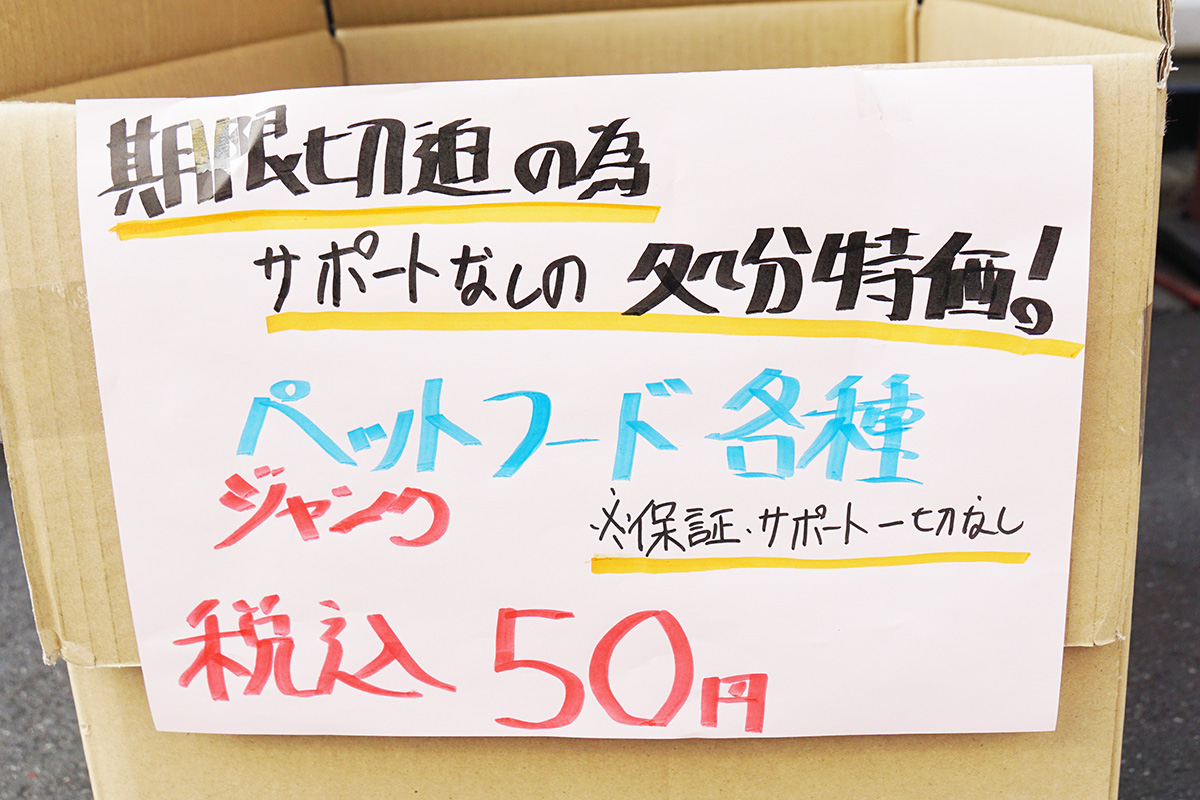 期限切迫の為
サポートなしの処分特価!
ペットフード各種
ジャンク ※保証・サポート一切なし
税込 50円